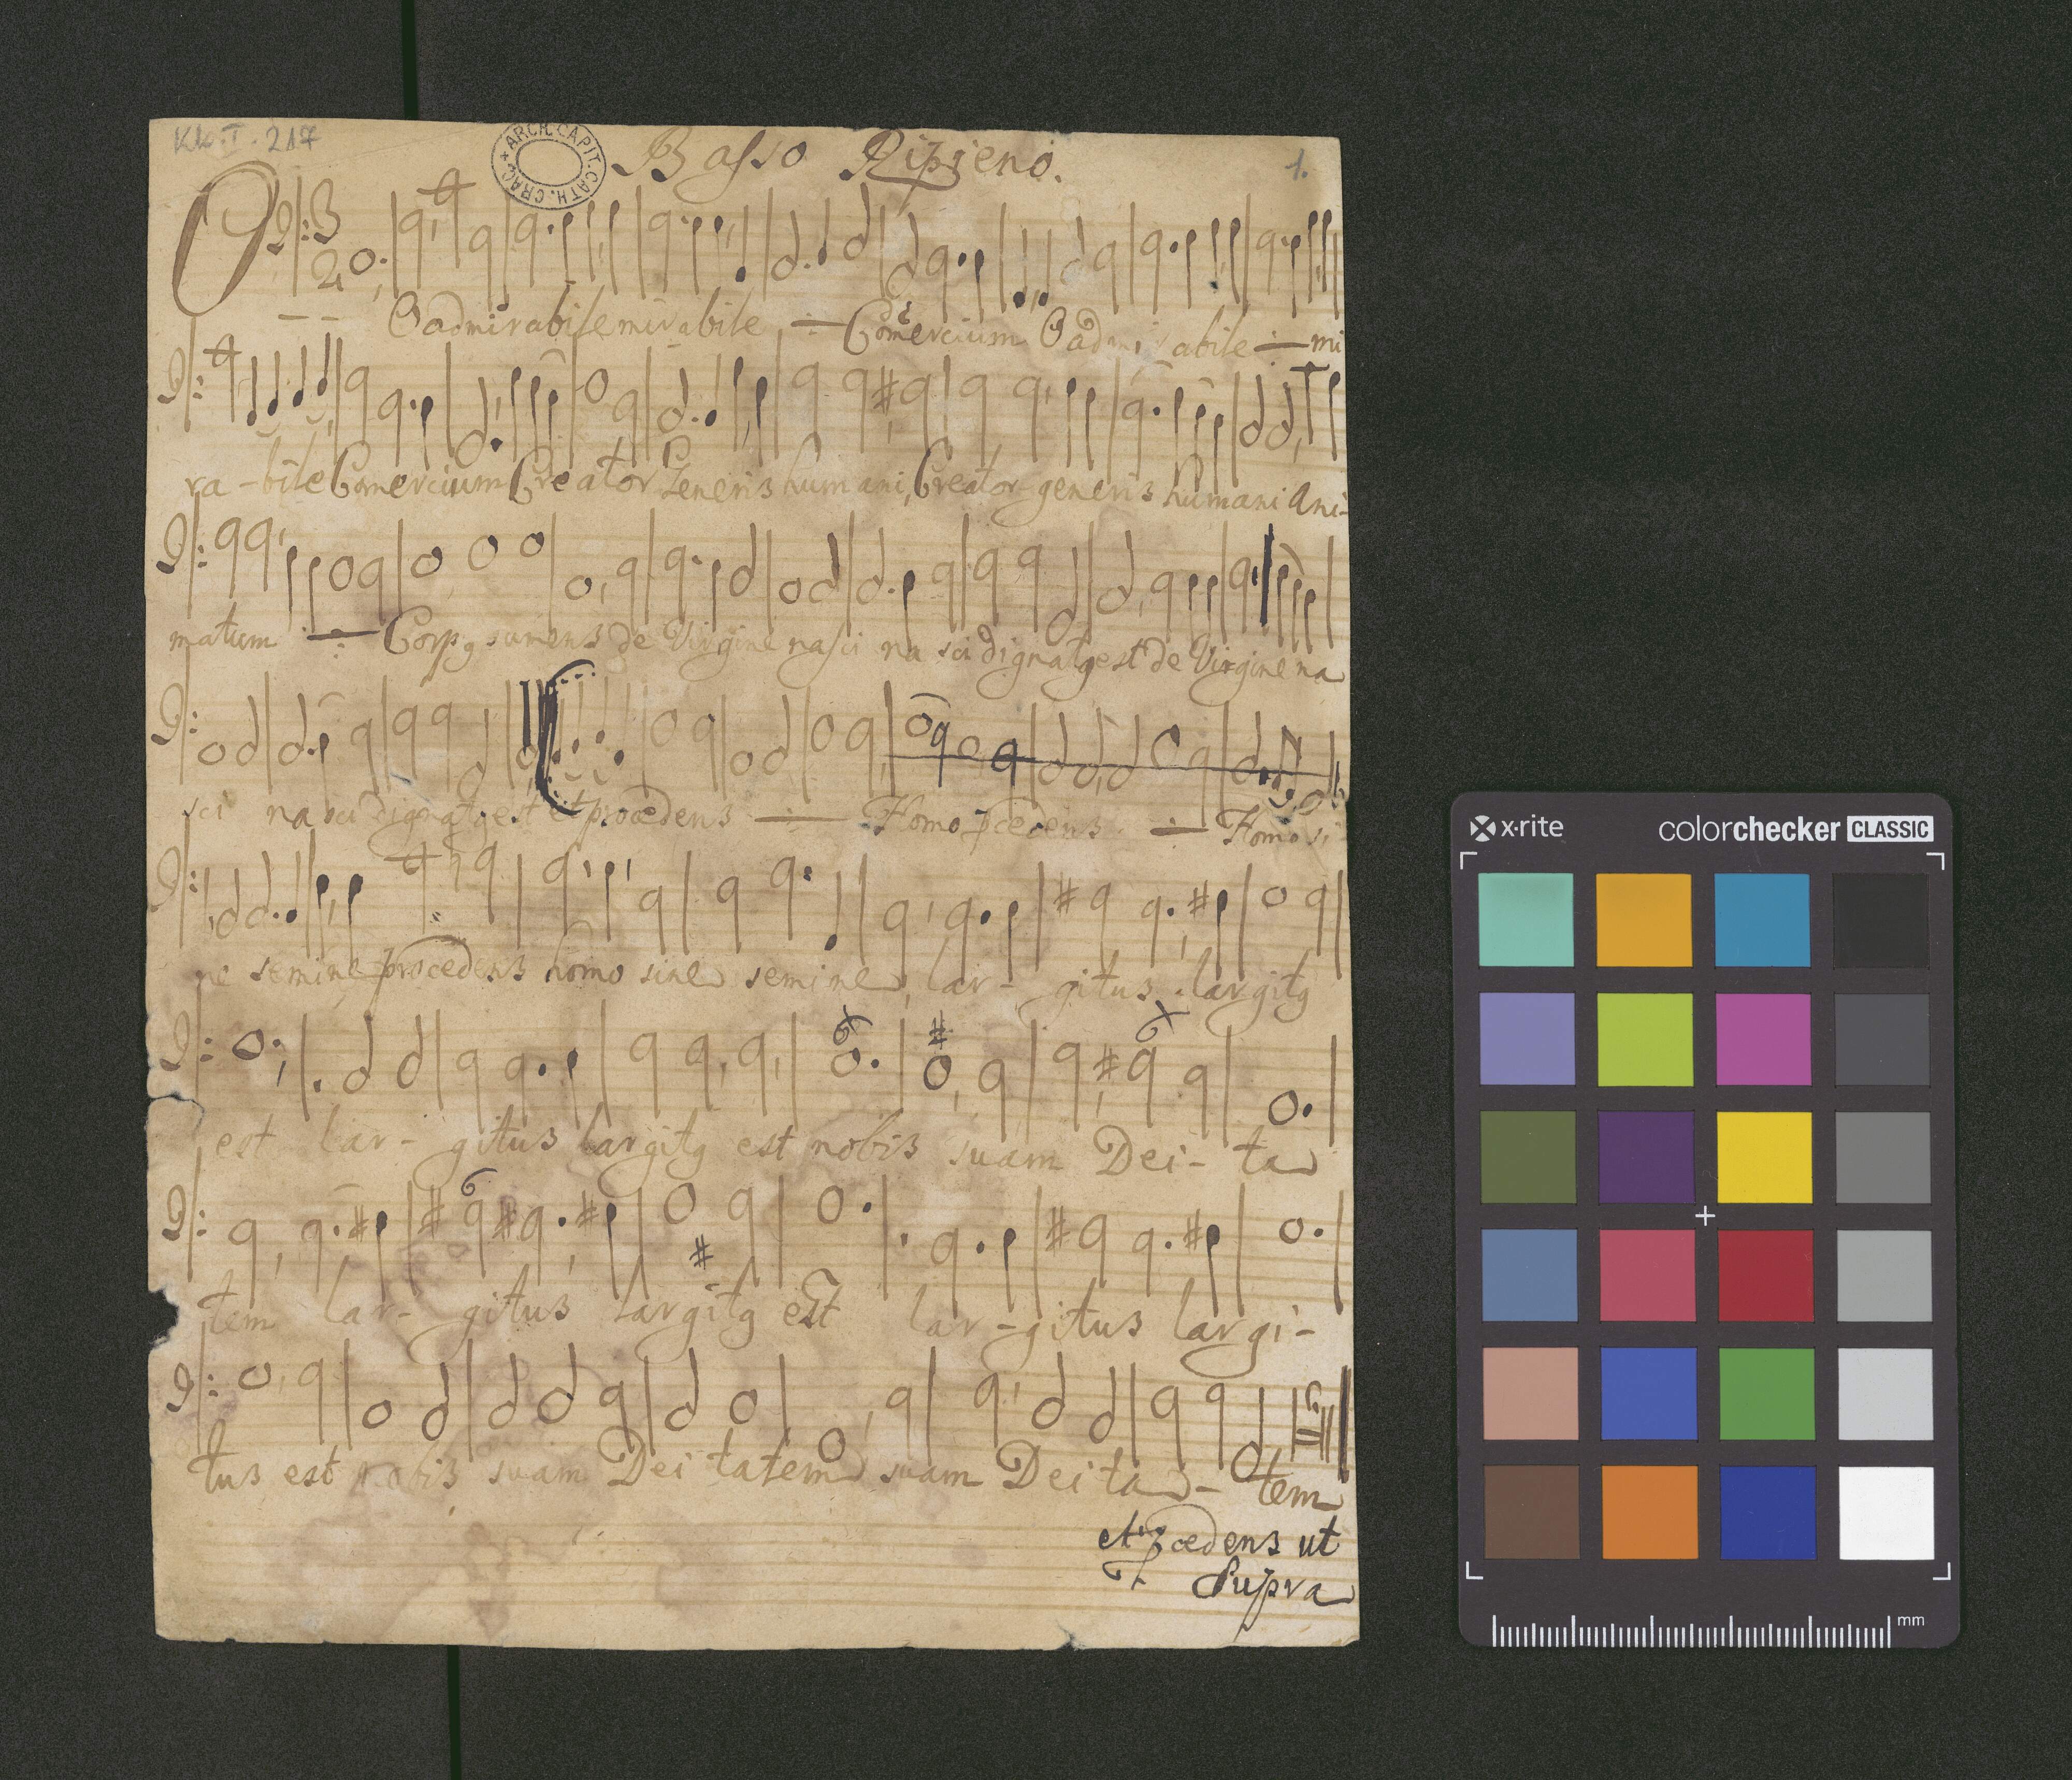 KK. I. 217
ARCH. CAPIT. CATH. CRAC.
Basso Ripieno.
1.
O admirabile mirabile ÷ Comercium O admirabile ÷ mi
ra - bile Comercium Creator Generis humani, Creator generis humani Ani-
matum ÷ Corpꝰ sumens de Virgine nasci na sci dignatꝰ est de Virgine na
sci na sci dignatꝰ est et procedens ÷ Homo ÷ Homo si
ne semine procedens homo sine semine, lar - gitus largitꝰ
est lar - gitus largitꝰ est nobis suam Dei - ta
tem lar - gitus largitꝰ est lar - gitus largi -
tus est nobis suam Dei tatem suam Dei ta - tem
ut
Supra
x·rite
colorchecker CLASSIC
mm